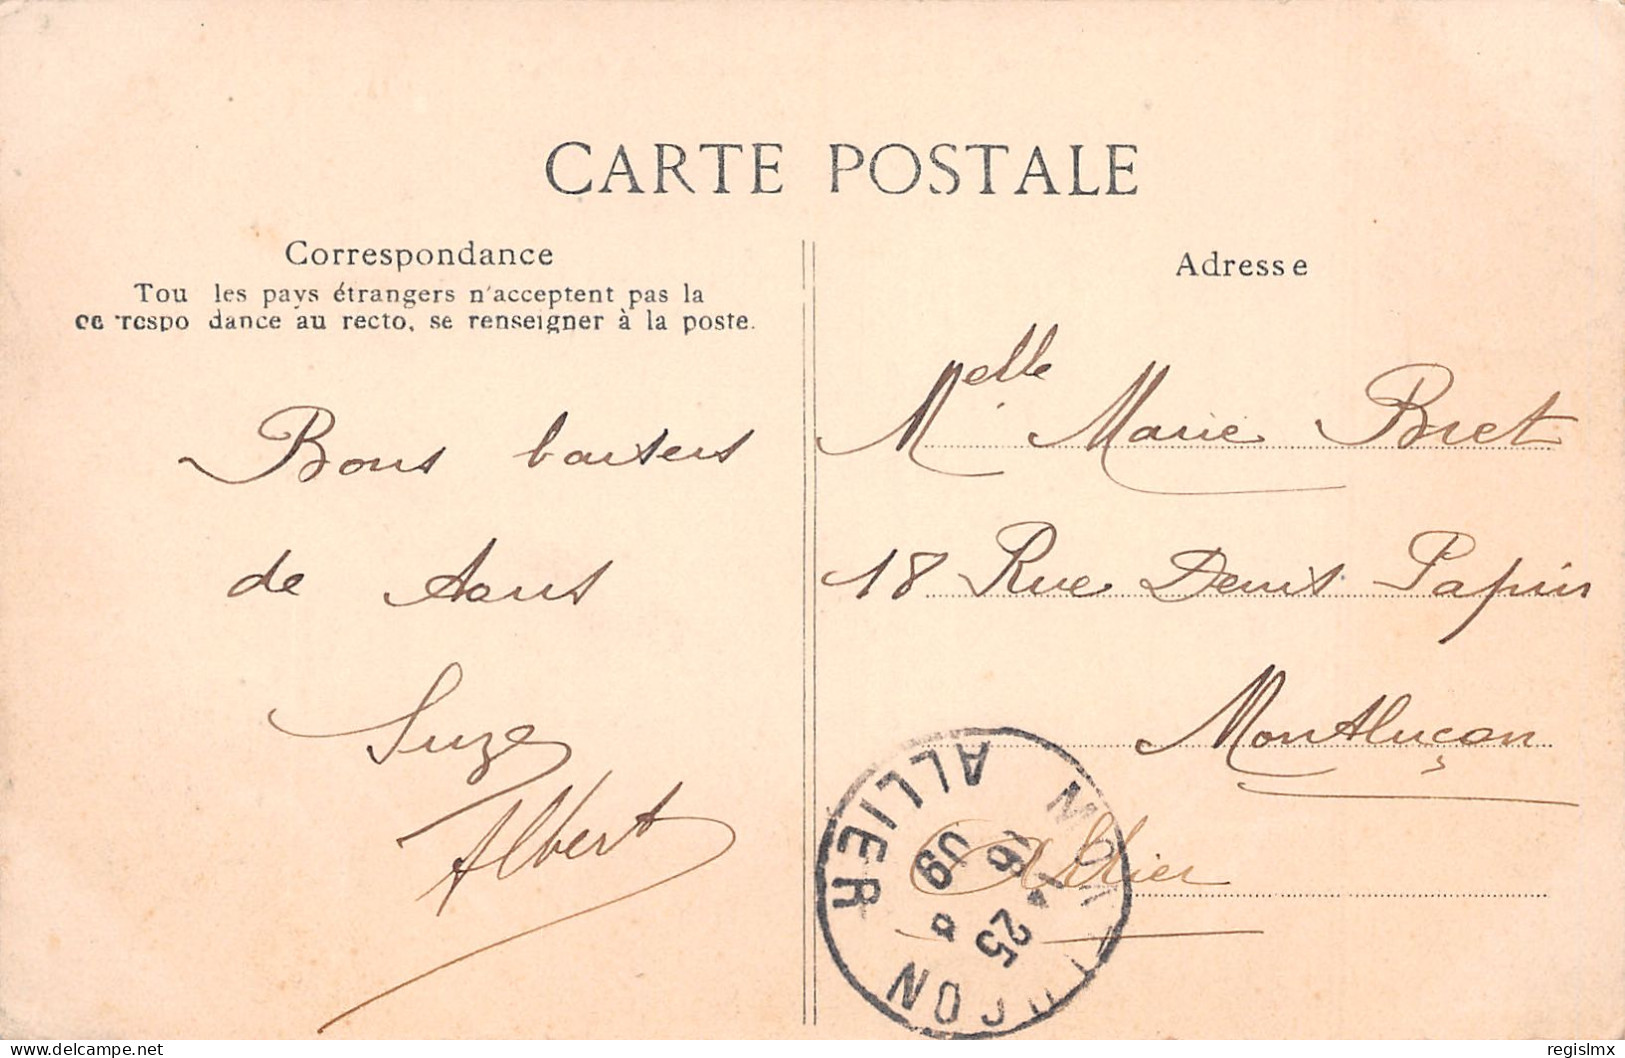 CARTE POSTALE
Correspondance
Tou les pays étrangers n'acceptent pas la
co respo dance au recto, se renseigner à la poste.
Bons baisers
de
Suze
Albert
Adresse
Melle Marie Bret
18 Rue Denis Papin
Montluçon
Allier
ALLIER
25
09
delcampe.net
regislmx